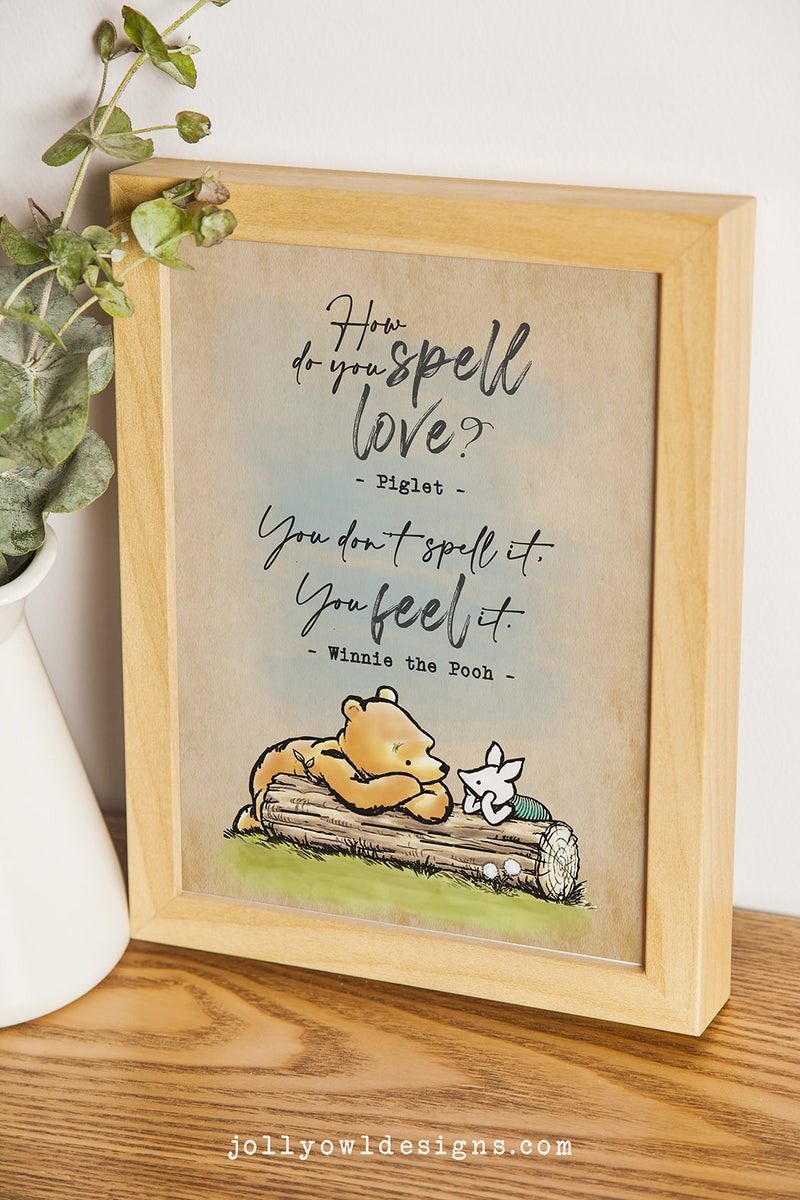 How
do you spell
love?
- Piglet -
You don't spell it,
You feel it.
- Winnie the Pooh -
jollyowldesigns.com